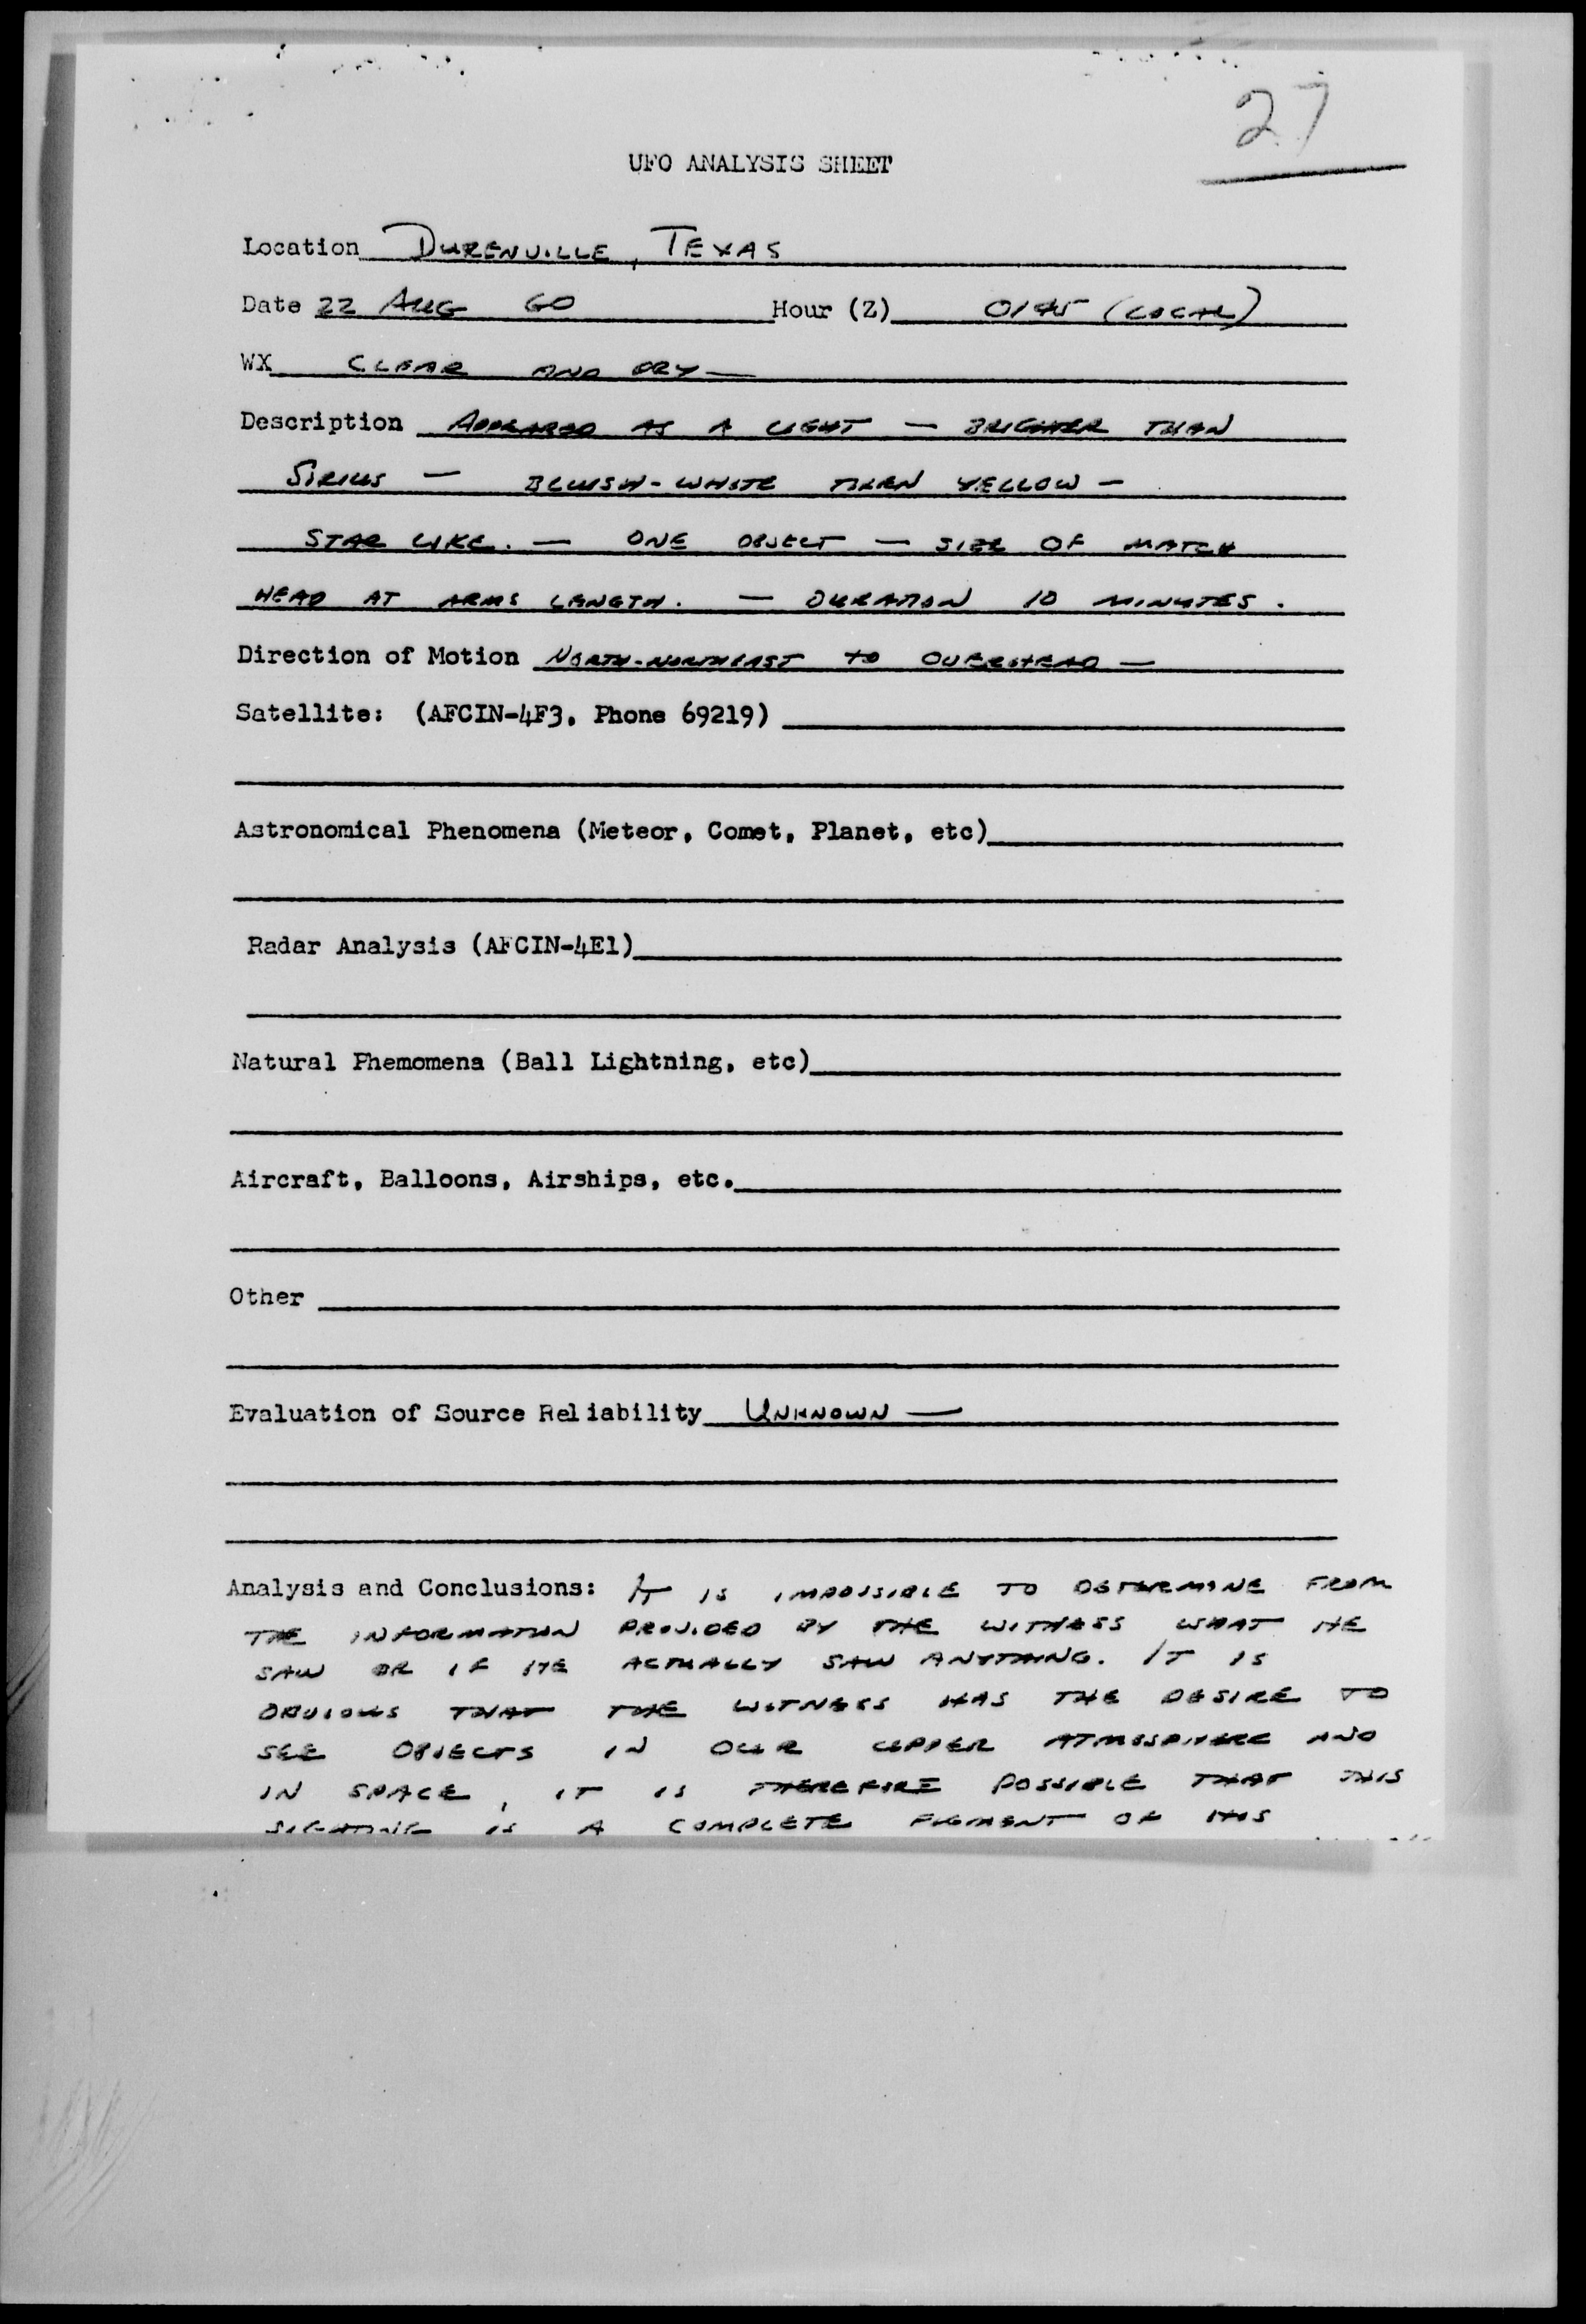 27
UFO ANALYSIS SHEET
Location DURENVILLE, TEXAS
Date 22 AUG 60 Hour (Z) 0145 (LOCAL)
WX CLEAR AND DRY —
Description APPEARED AS A LIGHT — BRIGHTER THAN
SIRIUS — BLUISH-WHITE THEN YELLOW —
STAR LIKE. — ONE OBJECT — SIZE OF MATCH
HEAD AT ARMS LENGTH. — DURATION 10 MINUTES.
Direction of Motion NORTH-NORTHEAST TO OVERHEAD —
Satellite: (AFCIN-4F3, Phone 69219)
Astronomical Phenomena (Meteor, Comet, Planet, etc)
Radar Analysis (AFCIN-4E1)
Natural Phemomena (Ball Lightning, etc)
Aircraft, Balloons, Airships, etc.
Other
Evaluation of Source Reliability UNKNOWN —
Analysis and Conclusions: IT IS IMPOSSIBLE TO DETERMINE FROM
THE INFORMATION PROVIDED BY THE WITNESS WHAT HE
SAW OR IF HE ACTUALLY SAW ANYTHING. IT IS
OBVIOUS THAT THE WITNESS HAS THE DESIRE TO
SEE OBJECTS IN OUR UPPER ATMOSPHERE AND
IN SPACE, IT IS THEREFORE POSSIBLE THAT THIS
SIGHTING IS A COMPLETE FIGMENT OF HIS